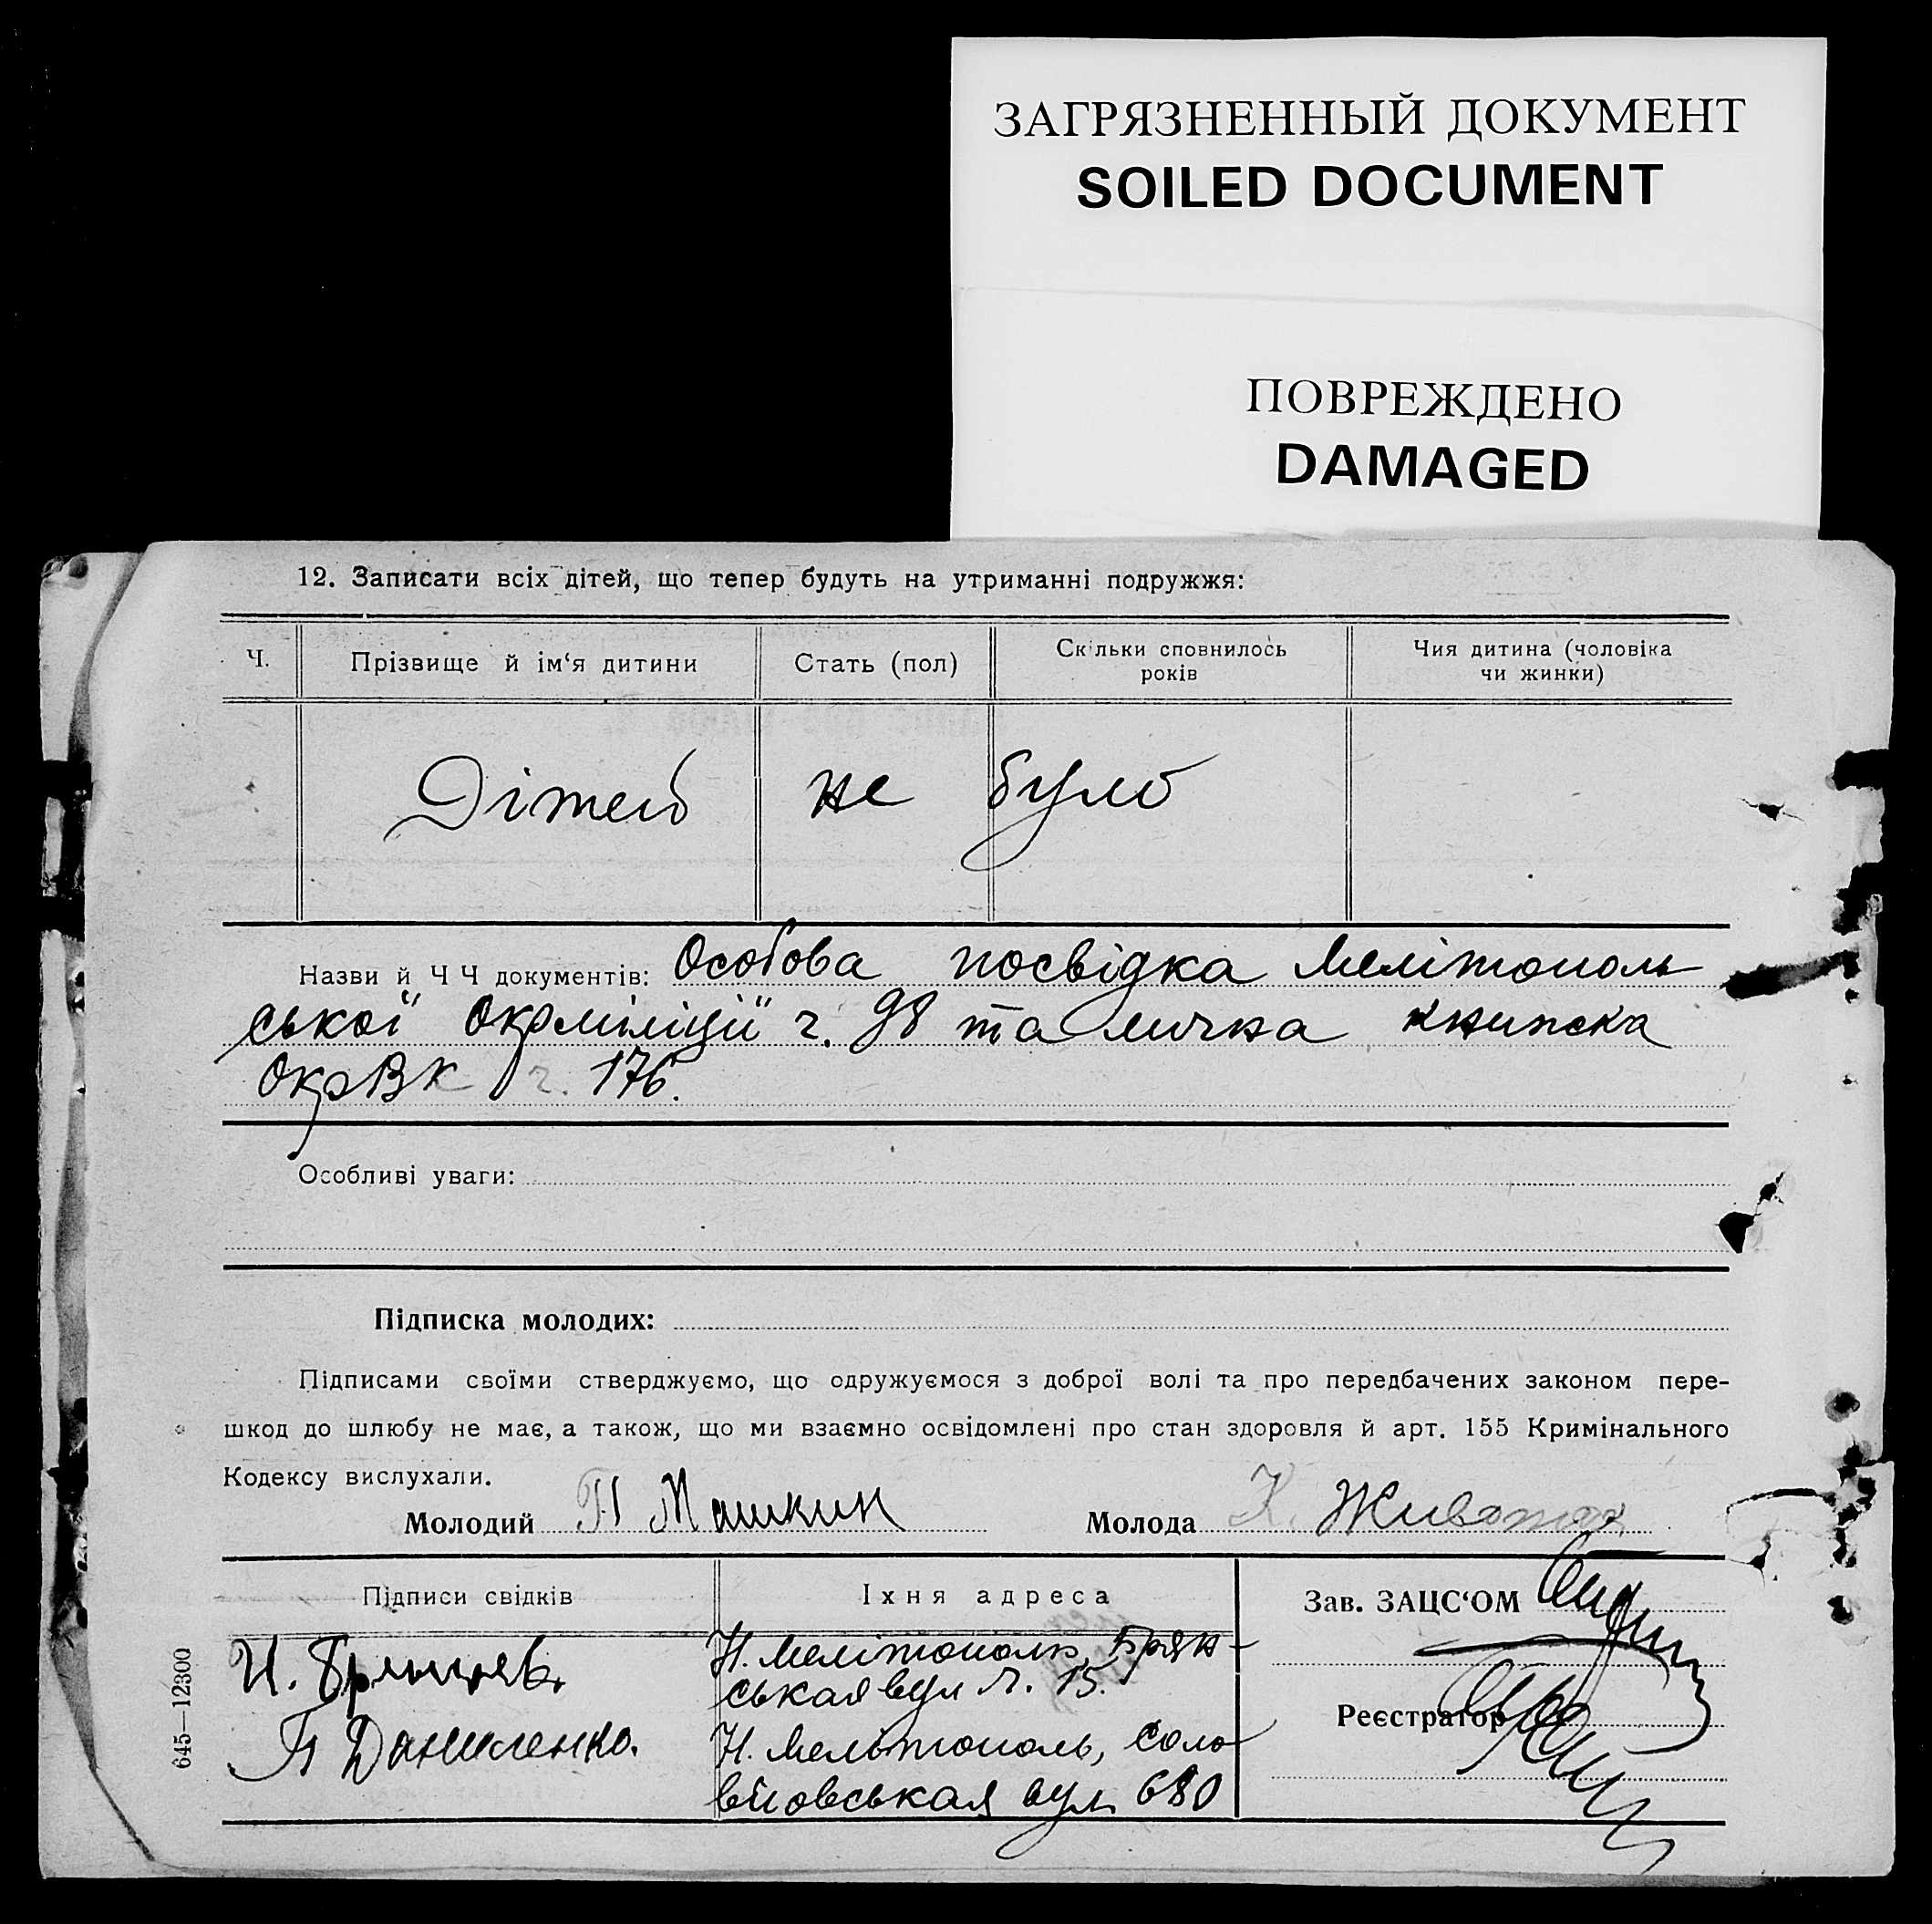 ЗАГРЯЗНЕННЫЙ ДОКУМЕНТ
SOILED DOCUMENT
ПОВРЕЖДЕНО
DAMAGED
12. Записати всіх дітей, що тепер будуть на утриманні подружжя:
Ч.
Прізвище й ім‘я дитини
Стать (пол)
Скільки сповнилось
років
Чия дитина (чоловіка
чи жинки)
Дітей не було
Назви й Ч Ч документів: Особова посвідка Мелітополь
ської Окрміліції ч. 98 та лична книжка
ОкрВК ч. 176.
Особливі уваги:
Підписка молодих:
Підписами своїми стверджуємо, що одружуємося з доброї волі та про передбачених законом пере-
шкод до шлюбу не має, а також, що ми взаємно освідомлені про стан здоровля й арт. 155 Кримінального
Кодексу вислухали.
Молодий Машкин
Молода К.
Підписи свідків
Їхня адреса
Зав. ЗАЦС‘ОМ
И.
Н. Мелітополь, Брян-
ськая вул ч. 15.
Реєстратор
П Даниленко.
Н. Мелітополь, Соло
вйовськая вул 680
645—12300